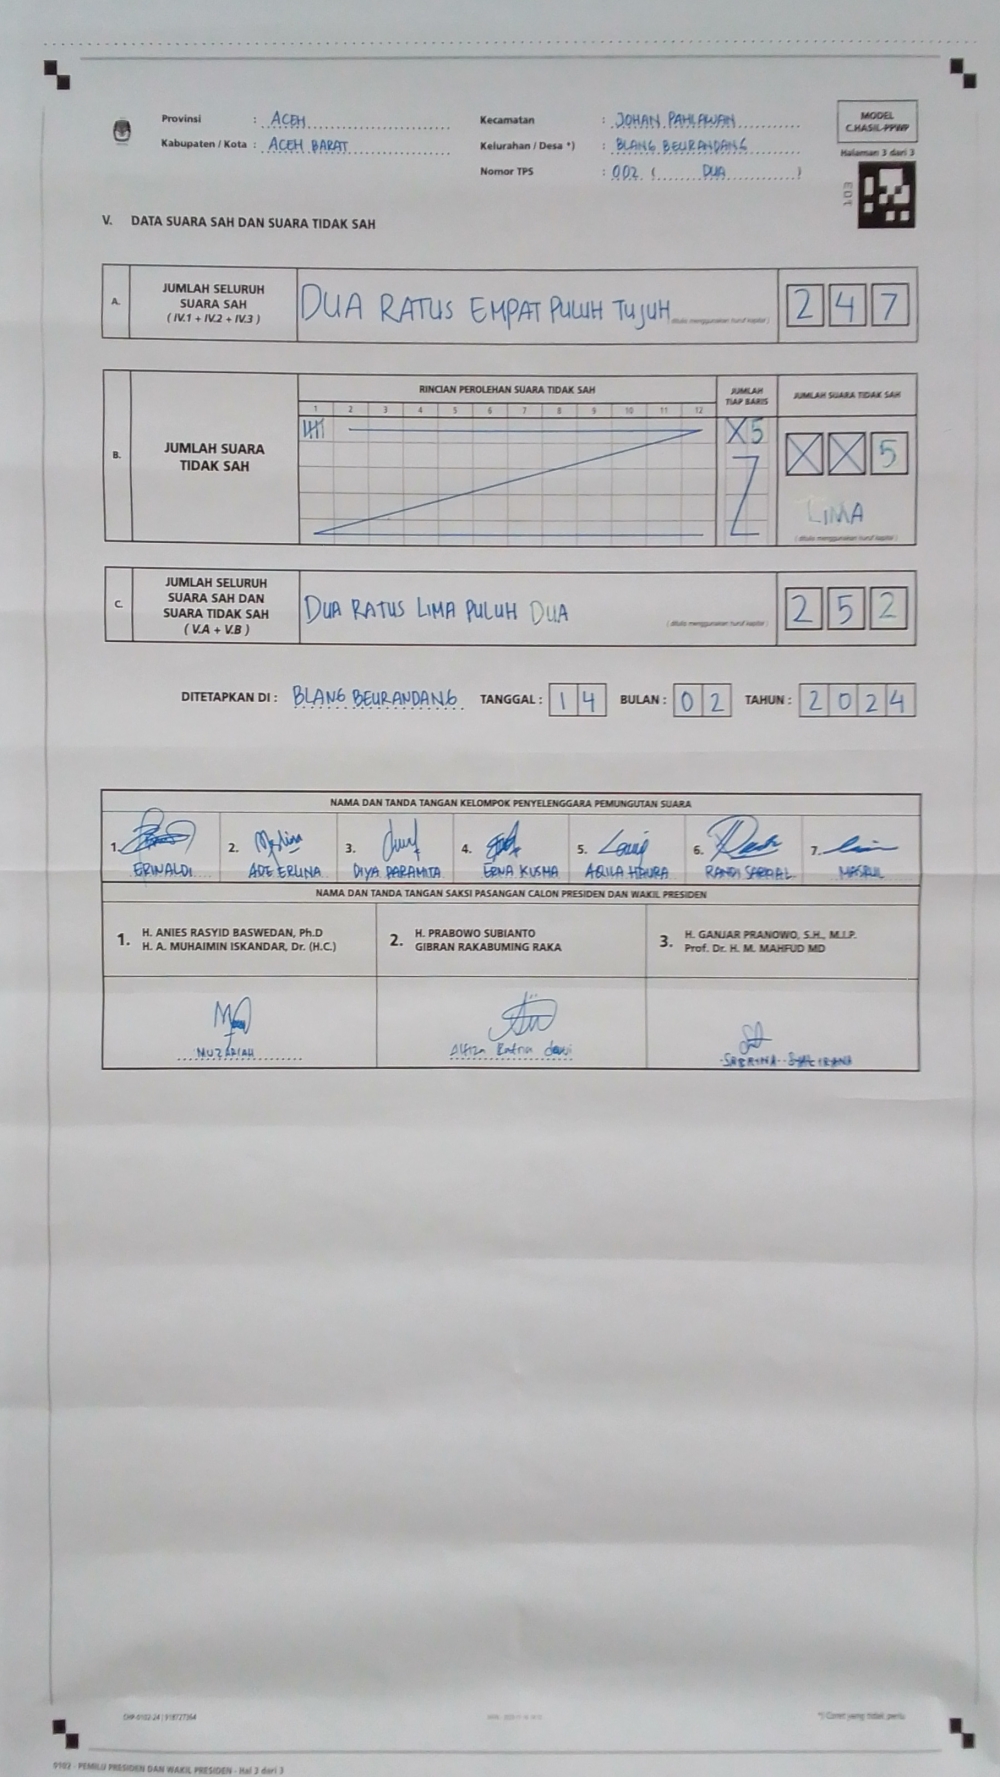 Provinsi : ACEH
Kabupaten / Kota : ACEH BARAT
Kecamatan : JOHAN PAHLAWAN
Kelurahan / Desa *) : BLANG BEURANDANG
Nomor TPS : 002 ( DUA )
MODEL
C.HASIL-PPWP
Halaman 3 dari 3
103
V. DATA SUARA SAH DAN SUARA TIDAK SAH
A. JUMLAH SELURUH
SUARA SAH
( IV.1 + IV.2 + IV.3 )
DUA RATUS EMPAT PULUH TUJUH
(ditulis menggunakan huruf kapital)
2 4 7
B. JUMLAH SUARA
TIDAK SAH
RINCIAN PEROLEHAN SUARA TIDAK SAH
1 2 3 4 5 6 7 8 9 10 11 12
JUMLAH
TIAP BARIS
X5
JUMLAH SUARA TIDAK SAH
X X 5
LIMA
(ditulis menggunakan huruf kapital)
C. JUMLAH SELURUH
SUARA SAH DAN
SUARA TIDAK SAH
( V.A + V.B )
DUA RATUS LIMA PULUH DUA
(ditulis menggunakan huruf kapital)
2 5 2
DITETAPKAN DI : BLANG BEURANDANG TANGGAL : 14 BULAN : 02 TAHUN : 2024
NAMA DAN TANDA TANGAN KELOMPOK PENYELENGGARA PEMUNGUTAN SUARA
1. 2. 3. 4. 5. 6. 7.
ERINALDI ADE ERLINA DIYA PARAMITA ERNA KUSMA AQILA HAURA RANDI MASRUL
NAMA DAN TANDA TANGAN SAKSI PASANGAN CALON PRESIDEN DAN WAKIL PRESIDEN
1. H. ANIES RASYID BASWEDAN, Ph.D
H. A. MUHAIMIN ISKANDAR, Dr. (H.C.)
2. H. PRABOWO SUBIANTO
GIBRAN RAKABUMING RAKA
3. H. GANJAR PRANOWO, S.H., M.I.P.
Prof. Dr. H. M. MAHFUD MD
MUZARIAH
SABRINA
*) Coret yang tidak perlu
0102 - PEMILU PRESIDEN DAN WAKIL PRESIDEN - Hal 3 dari 3